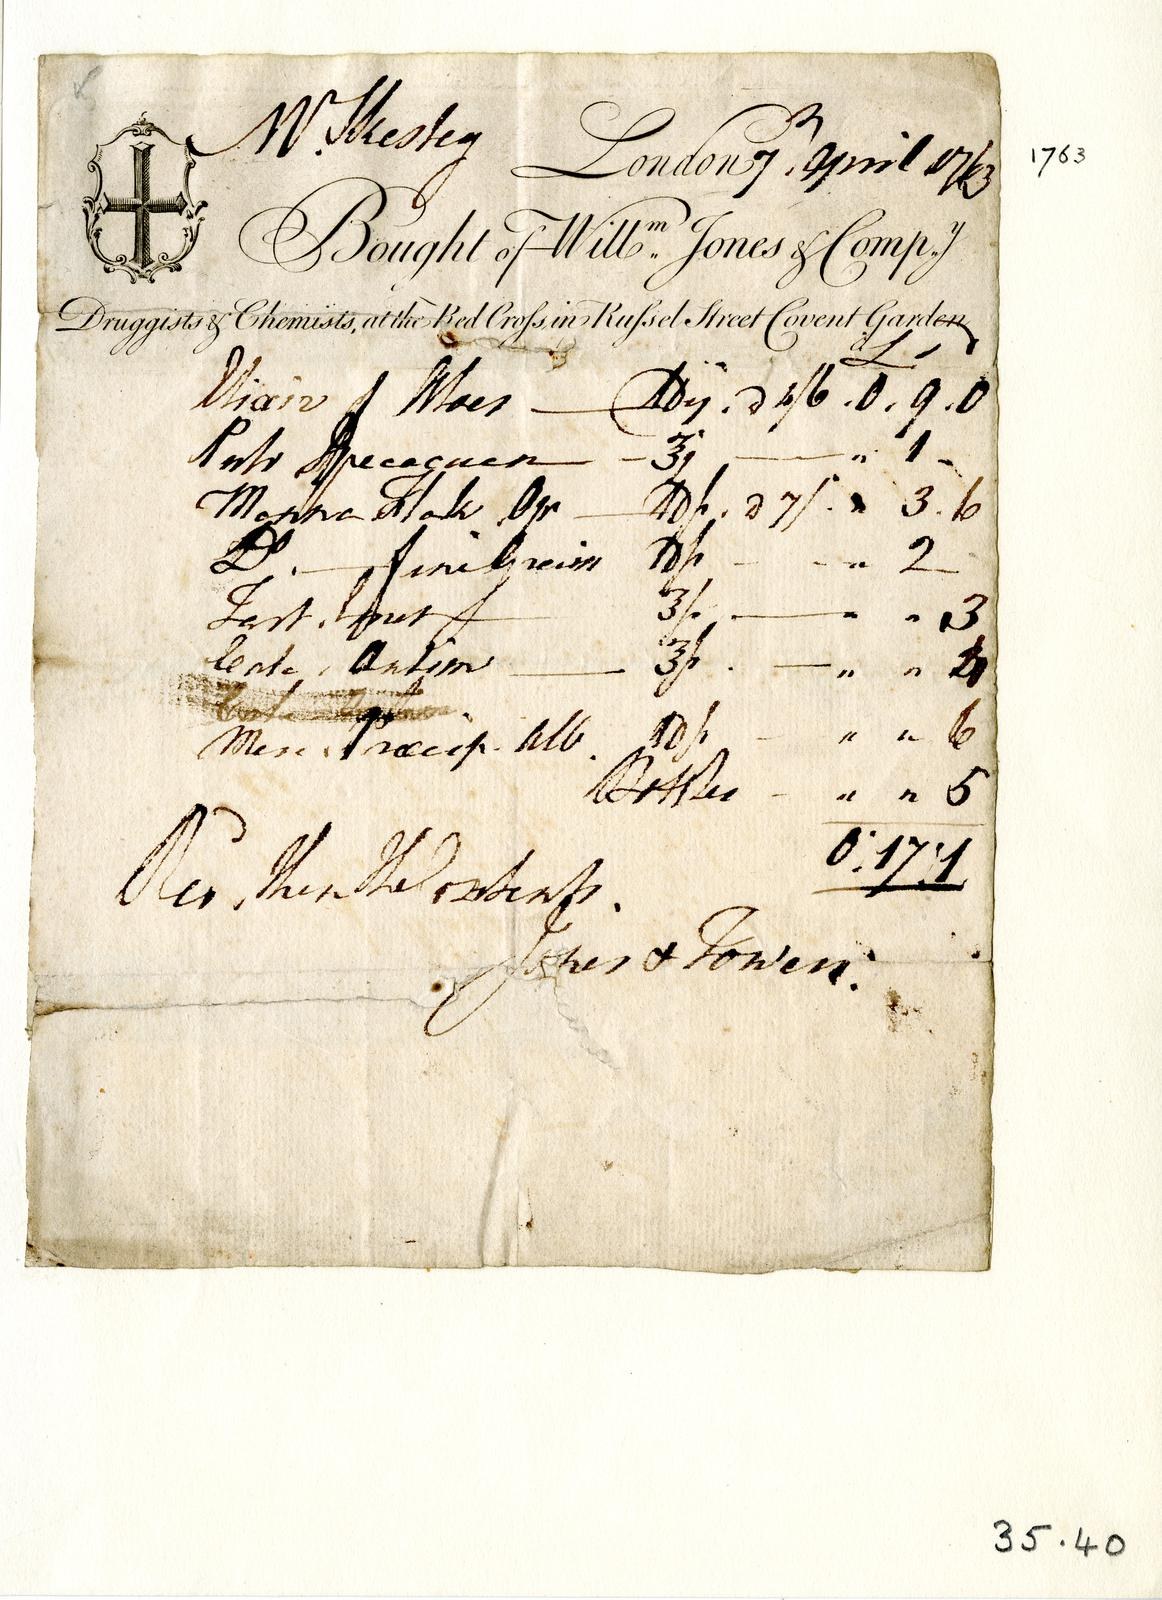 Mr. Skeshey London 7 April 1763
1763
Bought of Willm. Jones & Compy.
Druggists & Chemists, at the Red Cross, in Russel Street Covent Garden
£ s d
Elixir Aloes — ij . a 4/6 . 0 . 9 . 0
Pulv Ipecacuan — 3j — " 1 -
Manna Flak Opt — a 7/ . " 3 . 6
Do. — - - " 2 —
Tart. Emet — — " " 3
— — " " 4
Merc. Præcip. Alb. - " " 6
Bottles - " " 5
0 : 17 : 1
Recd. then the Contents.
Jones & Towen.
35.40